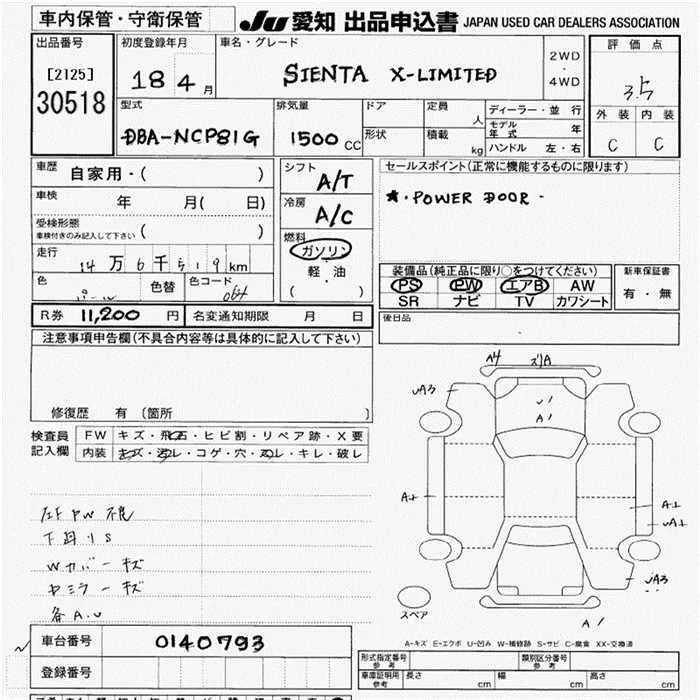 車内保管・守衛保管
JU 愛知 出品申込書 JAPAN USED CAR DEALERS ASSOCIATION
出品番号
[2125]
30518
初度登録年月
18 4 月
車名・グレード
SIENTA X-LIMITED
2WD
・
4WD
評価点
3.5
外装 内装
C C
型式
DBA-NCP81G
排気量
1500 CC
ドア
形状
定員
人
積載
kg
ディーラー・並行
モデル年式 年
ハンドル 左・右
車歴
自家用・( )
車検
年 月( 日)
受検形態
車検付きのみ記入して下さい ( )
走行
14万6千519km
色
色替
色コード
064
シフト
A/T
冷房
A/C
燃料
ガソリン
・
軽油
・
( )
セールスポイント(正常に機能するものに限ります)
★・POWER DOOR -
装備品(純正品に限り○をつけてください)
PS PW エアB AW
SR ナビ TV カワシート
新車保証書
有・無
後日品
R券 11,200 円
名変通知期限 月 日
注意事項申告欄(不具合内容等は具体的に記入して下さい)
修復歴 有 〔箇所 〕
検査員
記入欄
FW キズ・飛石・ヒビ割・リペア跡・X要
内装 キズ・汚レ・コゲ・穴・スレ・キレ・破レ
左F PW 不良
下回りS
Wカバーキズ
ドミラーキズ
各A.U
A4 ズリA
UA3
U1
A1
A1
A1
UA1
UA3
A1
スペア
A-キズ E-エクボ U-凹み W-補修跡 S-サビ C-腐食 XX-交換済
車台番号 0140793
登録番号
形式指定番号
参考
類別区分番号
参考
車庫証明用
参考
長さ cm 幅 cm 高さ cm